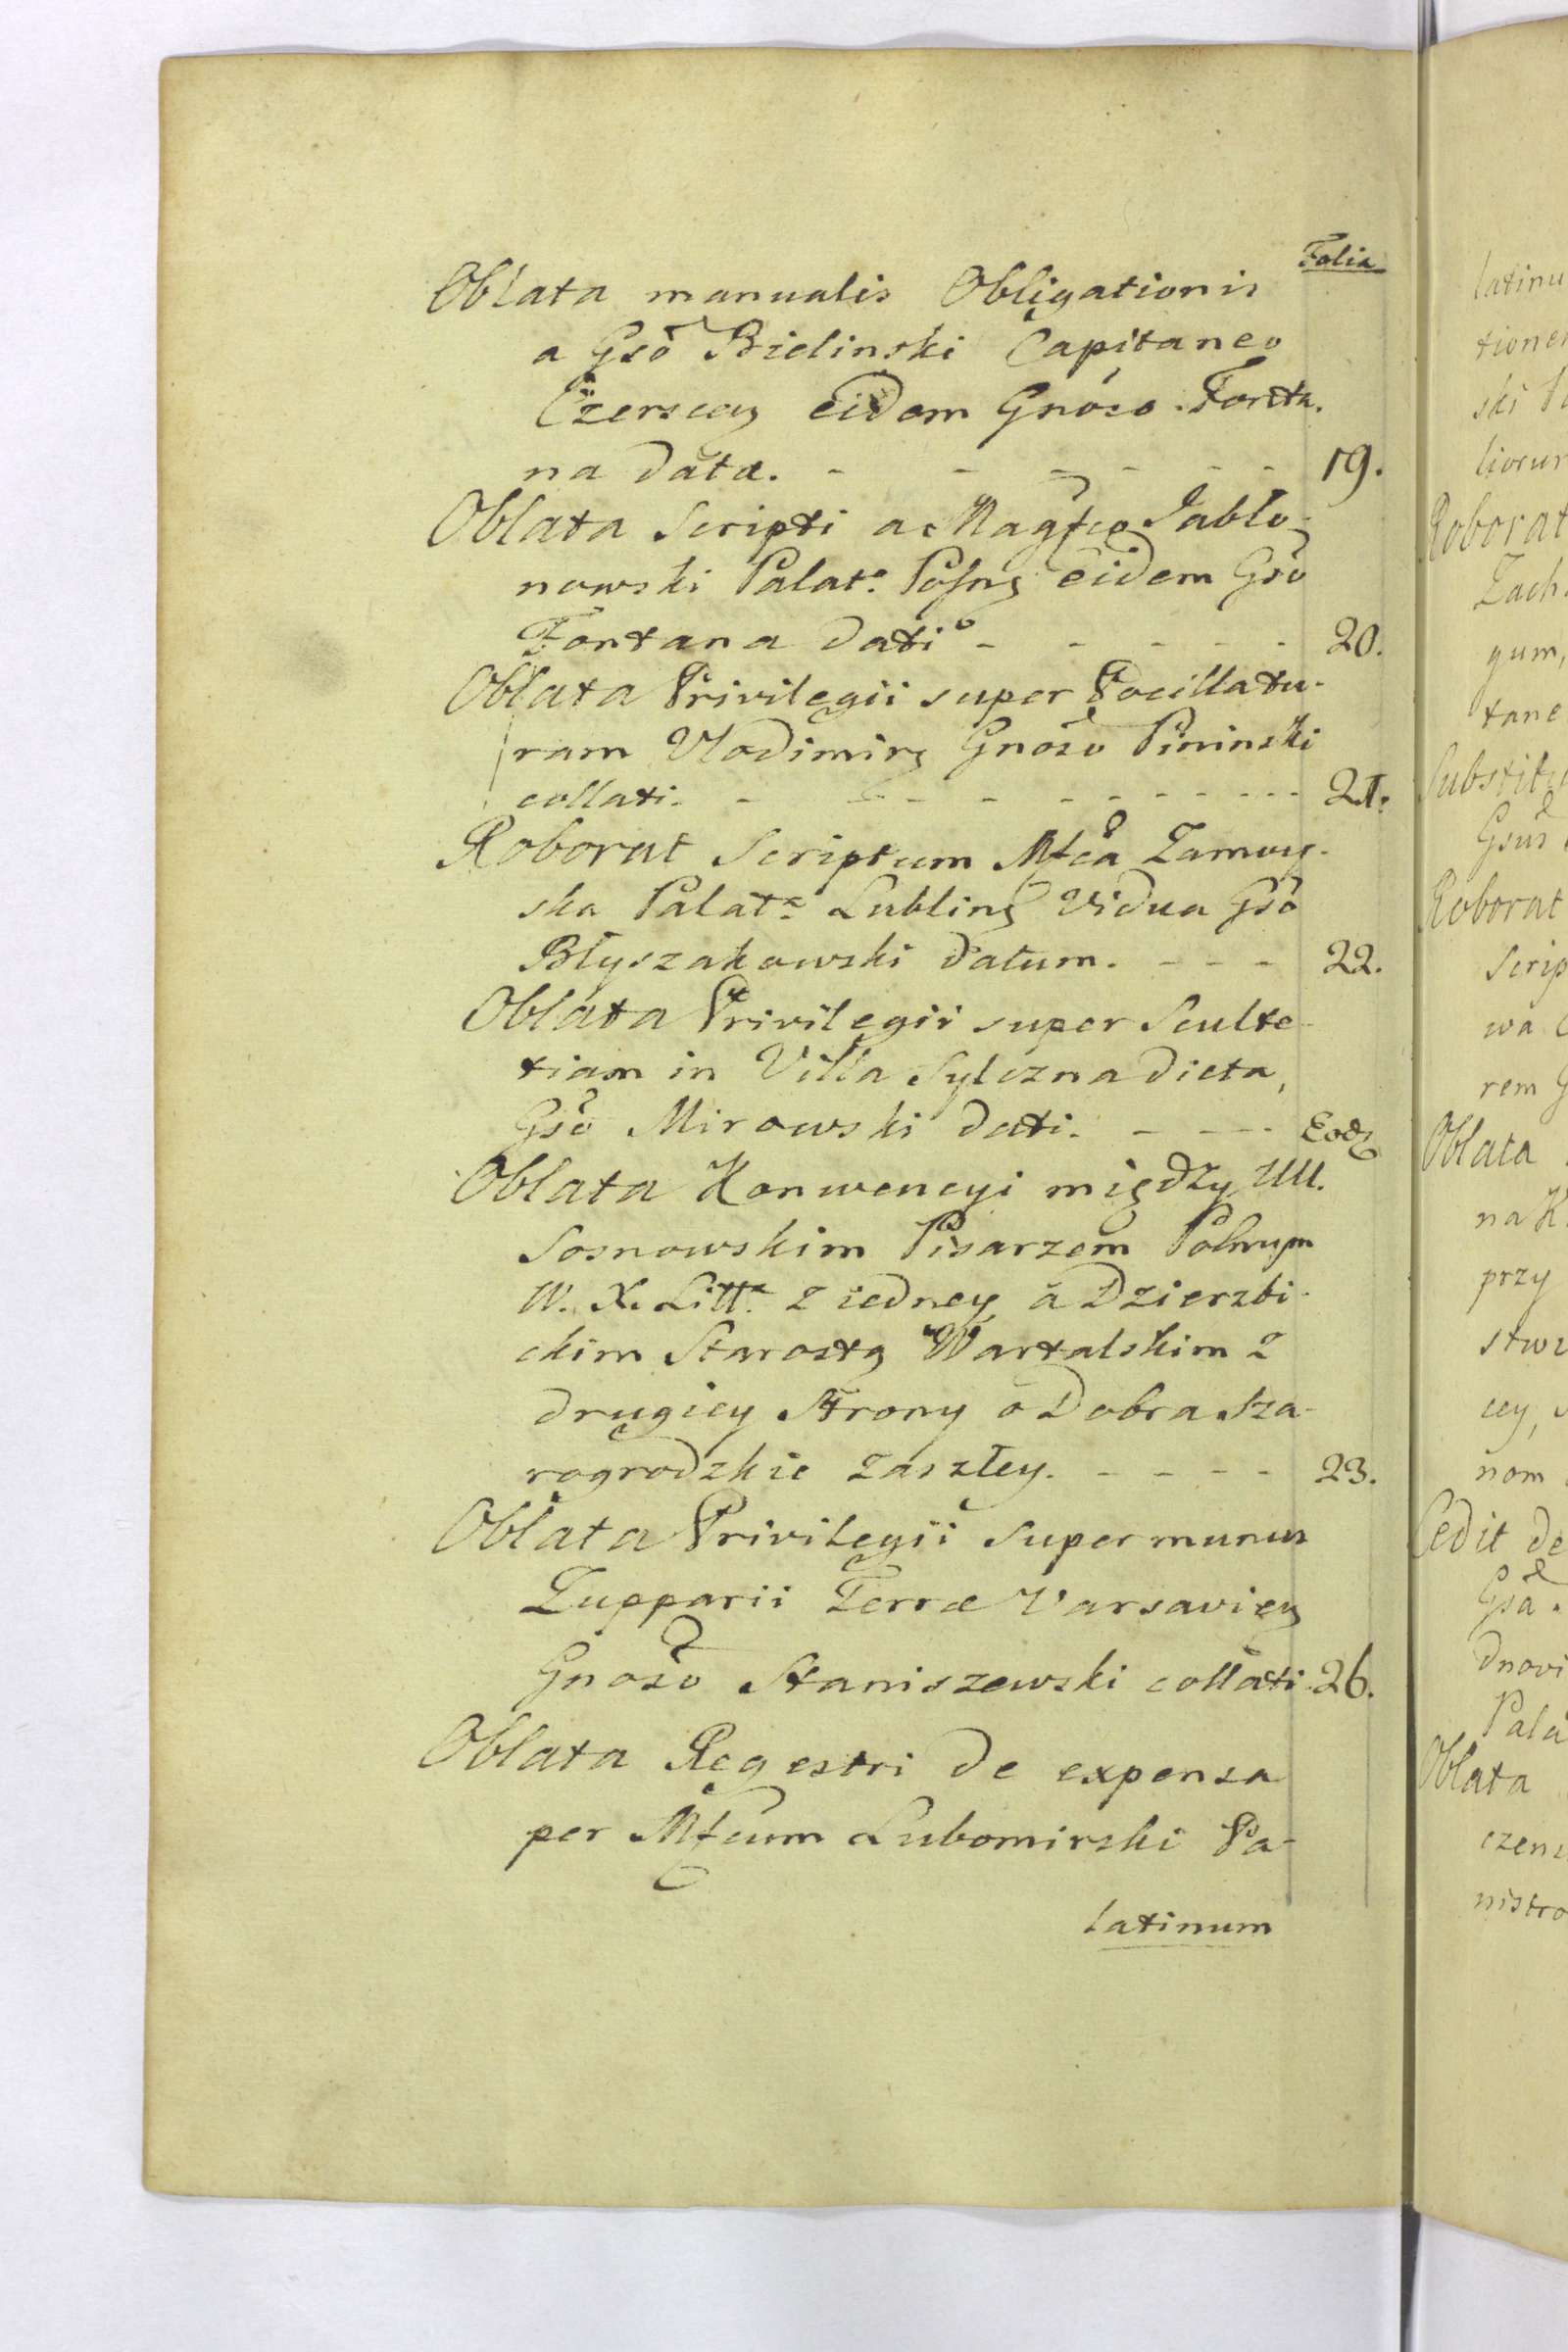 Folia
Oblata manualis Obligationis
a Gsô Bielinski Capitaneo
Czersceņ eidem Gnôso Fonta.
na data. - - - - - - 19.
Oblata Scripti a Magfco Jabło-
nowski Palat.º Posnę eidem Gsô
Fontana dati - - - - - 20.
Oblata Privilegii super Pocillatu-
ram Vlodimirę Gnoso Pininski
collati. - - - - - - - - - 21.
Roborat Scriptum Mfca Zamoy-
ska Palat.ª Lublinę Vidua Gsô
Błyszakowski datum. - - - 22.
Oblata Privilegii super Sculte-
tiam in Villa Sylczna dicta,
Gsô Mirowski dati. - - - Eodę
Oblata Konwencyi między UU.
Sosnowskim Pisarzem Polnym
W. X. Litt.ª z iedney, a Dzierzbi-
ckim Starostą Wartalskim z
drugiey Strony o Dobra Sza-
rogrodzkie zaszłey. - - - - 23.
Oblata Privilegii super munus
Zupparii Terræ Varsavieņ
Gnoso Staniszewski collati. 26.
Oblata Regestri de expensa
per Mfcum Lubomirski Pa-
latinum
latinu
tionem
ski
liorum
Roborat
Zach
gum,
tane
Substitu
Gsus
Roborat
Scrip
wa
rem
Oblata
na K
przy
stwi
cey,
nom
Cedit de
Gsa
dnovi
Pala
Oblata
czens
nistro